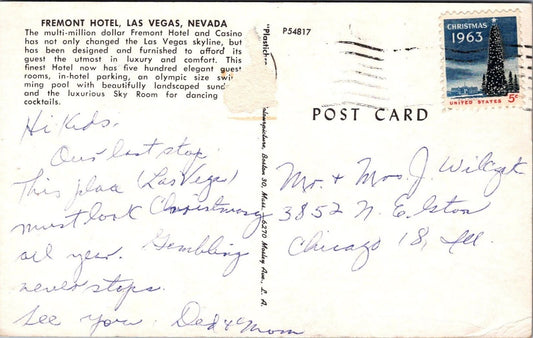 FREMONT HOTEL, LAS VEGAS, NEVADA
The multi-million dollar Fremont Hotel and Casino
has not only changed the Las Vegas skyline, but
has been designed and furnished to afford its
guest the utmost in luxury and comfort. This
finest Hotel now has five hundred elegant guest
rooms, in-hotel parking, an olympic size swim-
ming pool with beautifully landscaped sund
and the luxurious Sky Room for dancing
cocktails.
Hi Kids.
Our last stop.
This place (Las Vegas)
must look Christmasy
all year. Gembling
never stops.
See you. Ded & Mom
"Plastich
Boston 30, Mass. 6270 Mosley Ave., L. A.
P54817
POST CARD
CHRISTMAS
1963
UNITED STATES 5¢
Mr. + Mrs. J. Wilczek
3852 N. Elston
Chicago 18, Ill.